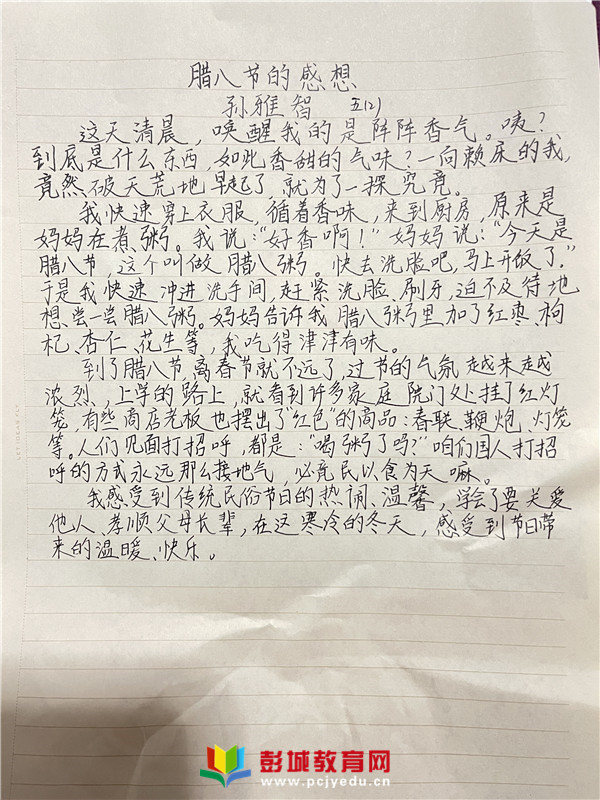 腊八节的感想
孙雅智 五(2)
这天清晨，唤醒我的是阵阵香气。咦？
到底是什么东西，如此香甜的气味？一向赖床的我，
竟然破天荒地早起了，就为了一探究竟。
我快速穿上衣服，循着香味，来到厨房，原来是
妈妈在煮粥。我说：“好香啊！”妈妈说：“今天是
腊八节，这个叫做腊八粥。快去洗脸吧，马上开饭了。”
于是我快速冲进洗手间，赶紧洗脸、刷牙，迫不及待地
想尝一尝腊八粥。妈妈告诉我腊八粥里加了红枣、枸
杞、杏仁、花生等，我吃得津津有味。
到了腊八节，离春节就不远了，过节的气氛越来越
浓烈，上学的路上，就看到许多家庭院门处挂了红灯
笼，有些商店老板也摆出了“红色”的商品：春联、鞭炮、灯笼
等。人们见面打招呼，都是：“喝粥了吗？”咱们国人打招
呼的方式永远那么接地气，必竟民以食为天嘛。
我感受到传统民俗节日的热闹、温馨，学会了要关爱
他人、孝顺父母长辈，在这寒冷的冬天，感受到节日带
来的温暖、快乐。
彭城教育网
www.pcjyedu.cn